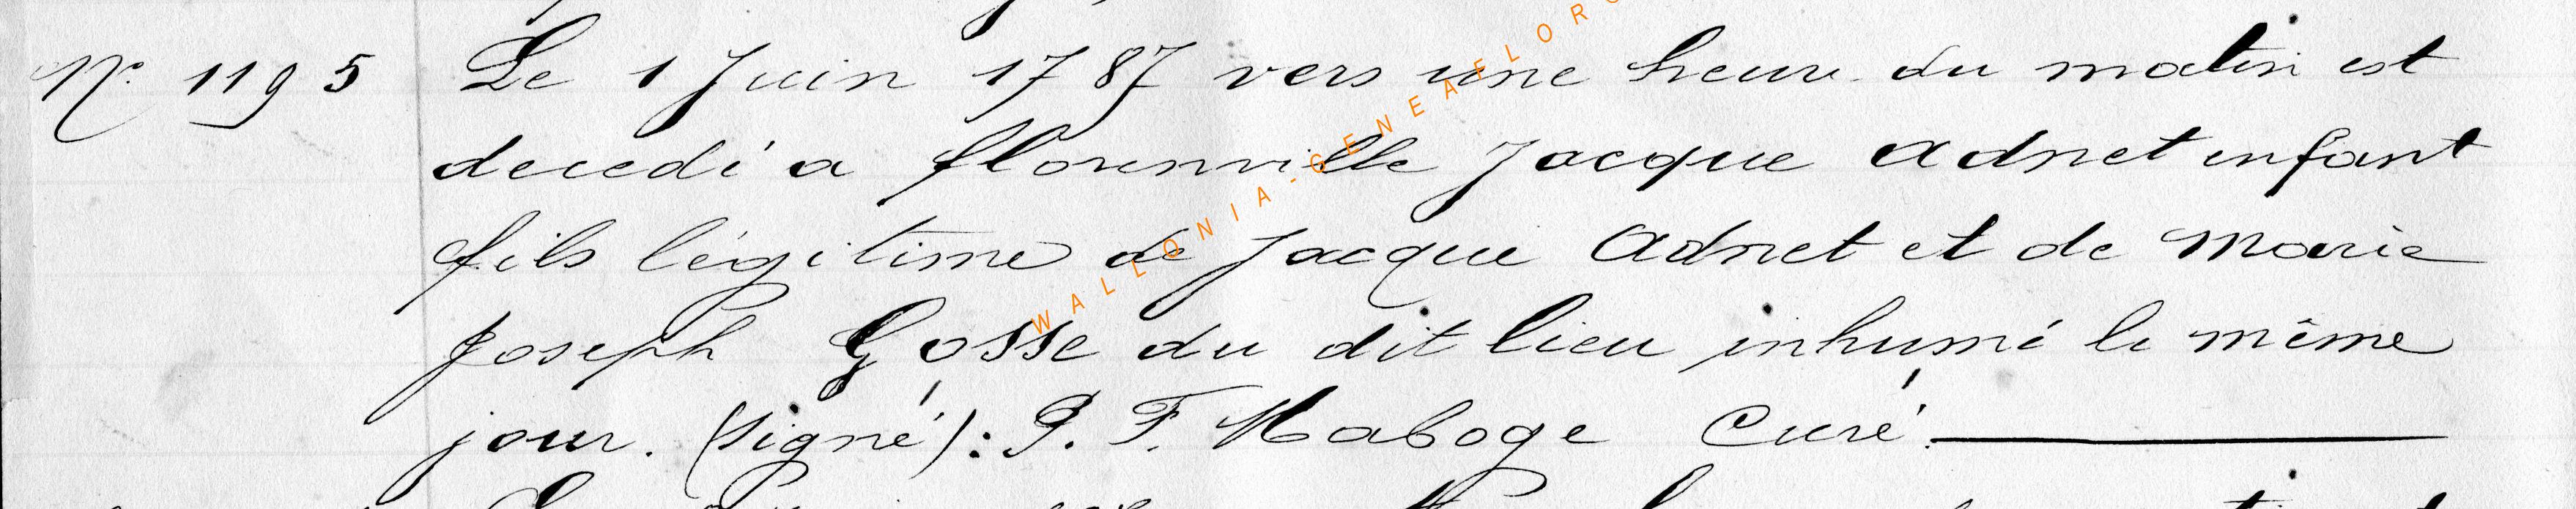 N° 1195 Le 1 Juin 1787 vers une heure du matin est
decedé a florenville Jacque Adnet enfant
fils légitime de Jacque Adnet et de Marie
Joseph Gosse du dit lieu inhumé le même
jour. (signé): P. F. Haboge Curé.
WALLONIA-GENEAFLOR